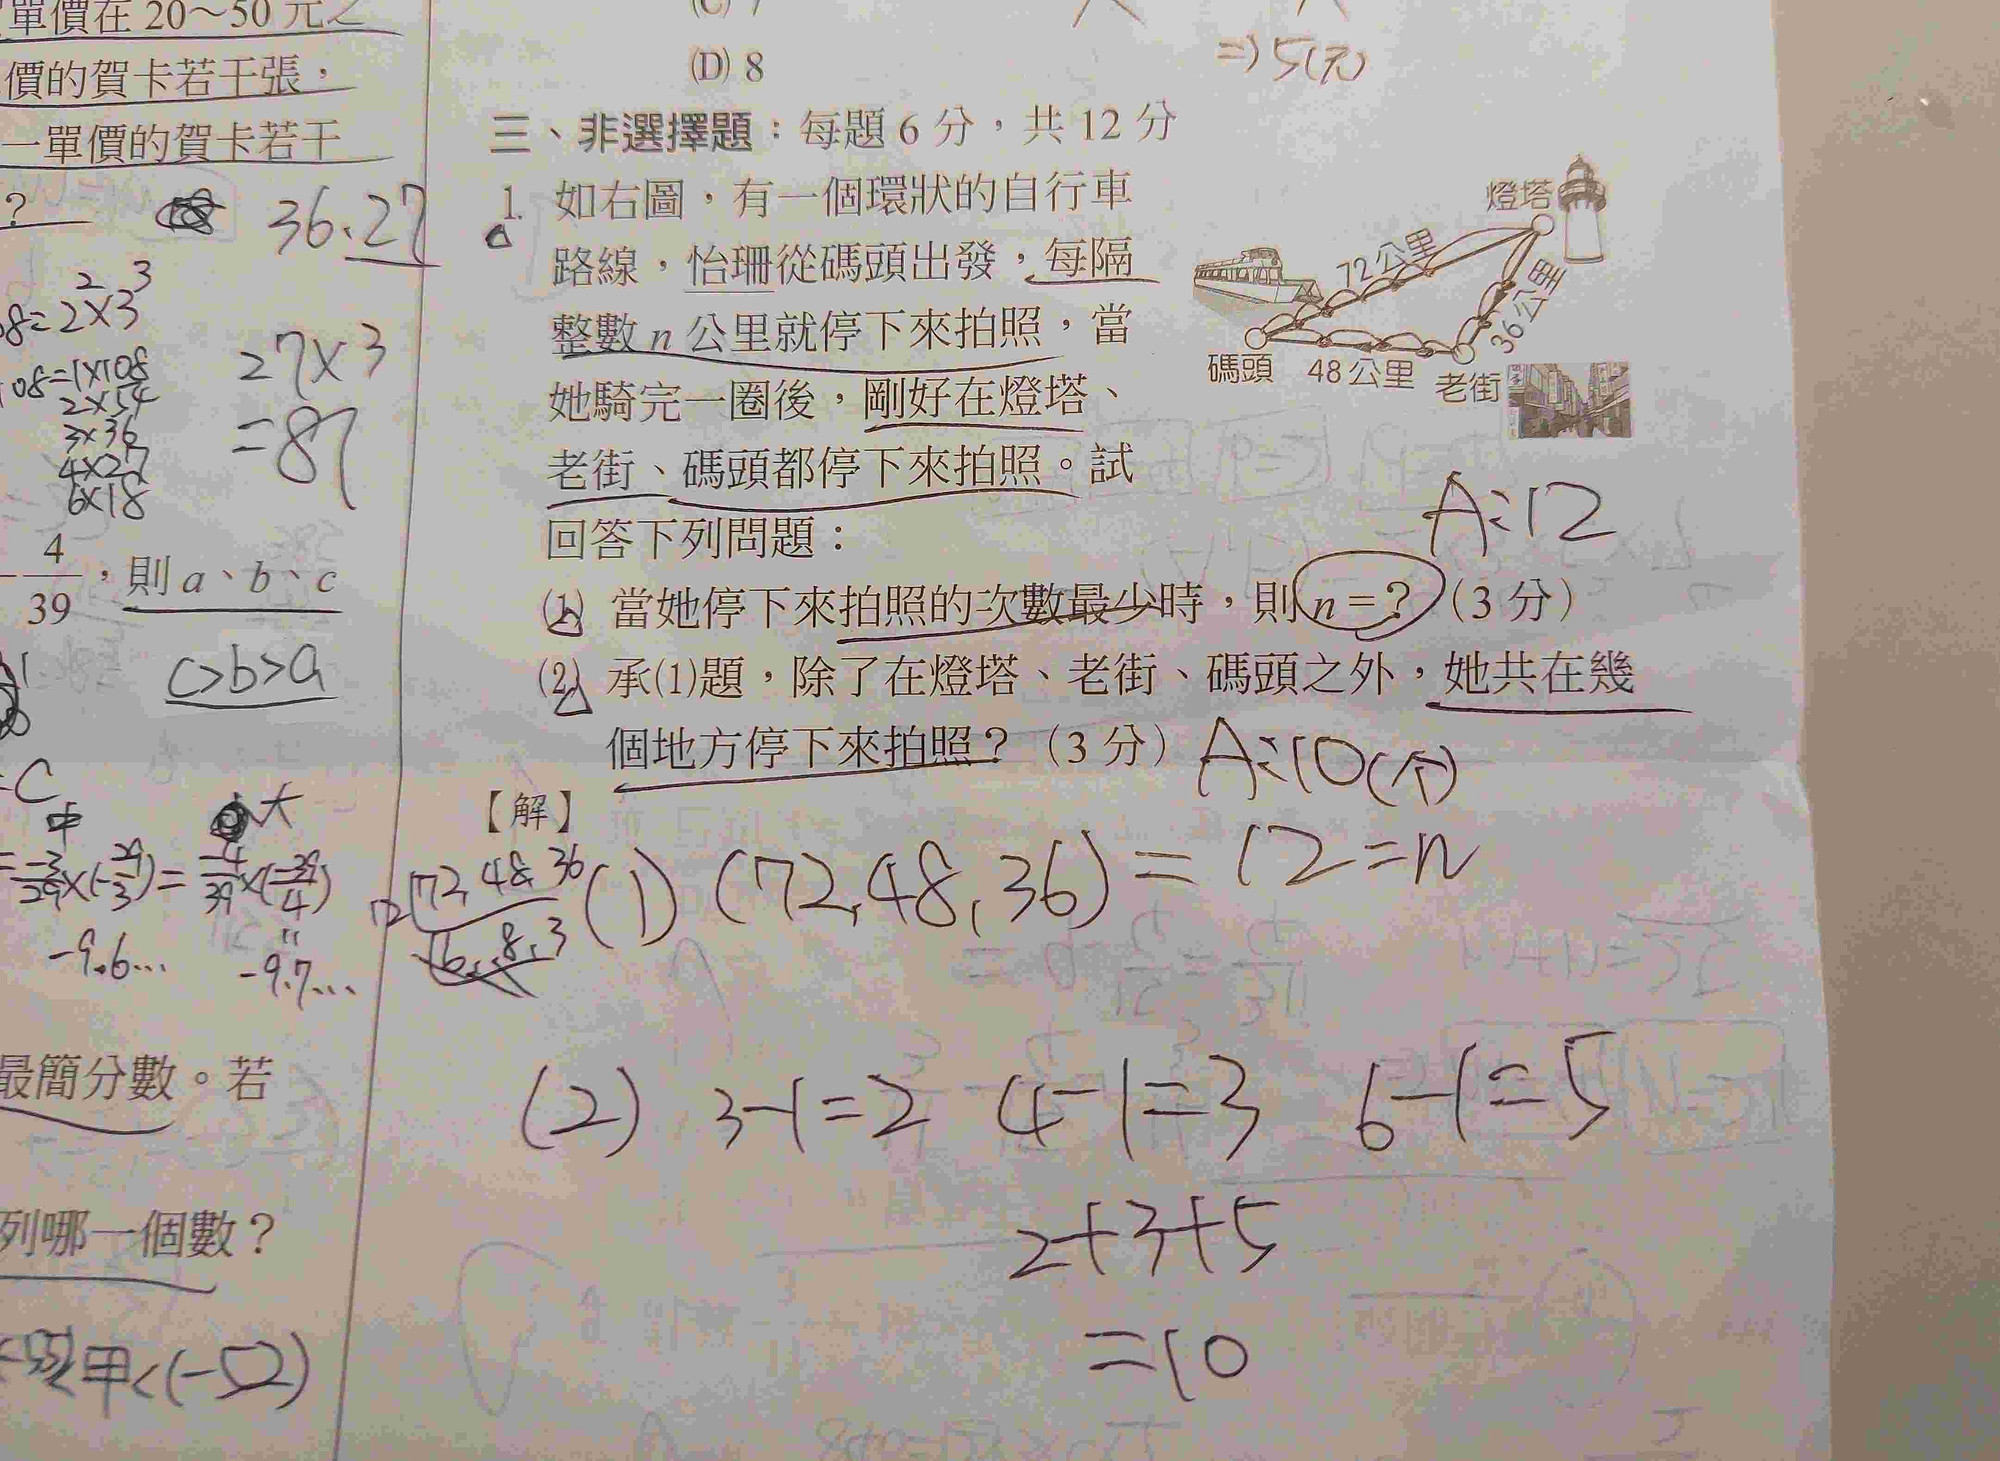 單價在 20～50 元之
價的賀卡若干張，
一單價的賀卡若干
?
36、27
2 3
08=2×3
108=1×108
2×54
3×36
4×27
6×18
27×3
=81
4
39
，則 a、b、c
c>b>a
中
大
-9.6...
-9.7...
最簡分數。若
列哪一個數？
甲<(-52)
(D) 8
=> 5(元)
三、非選擇題：每題 6 分，共 12 分
1. 如右圖，有一個環狀的自行車
路線，怡珊從碼頭出發，每隔
整數 n 公里就停下來拍照，當
她騎完一圈後，剛好在燈塔、
老街、碼頭都停下來拍照。試
回答下列問題：
燈塔
72公里
36公里
碼頭
48公里
老街
A:12
(1) 當她停下來拍照的次數最少時，則 n=？（3 分）
(2) 承(1)題，除了在燈塔、老街、碼頭之外，她共在幾
個地方停下來拍照？（3 分）
A:10(個)
【解】
12 72,48,36
(1) (72,48,36)=12=n
(2) 3-1=2 4-1=3 6-1=5
2+3+5
=10